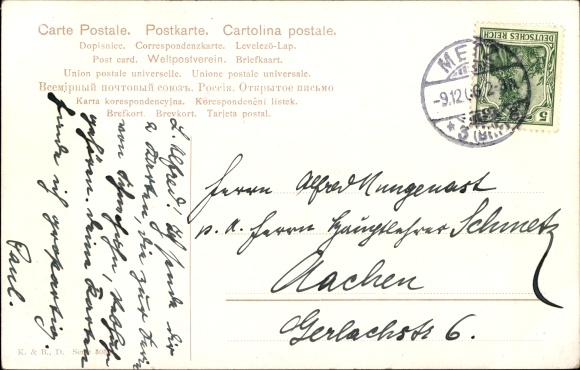 Carte Postale. Postkarte. Cartolina postale.
Dopisnice. Correspondenzkarte. Levelező-Lap.
Post card. Weltpostverein. Briefkaart.
Union postale universelle. Unione postale universale.
Всемірный почтовый союзъ. Россія. Открытое письмо
Karta korespondencyjna. Korespondenční lístek.
Brefkort. Brevkort. Tarjeta postal.
DEUTSCHES REICH
5
METZ
-9.12.
Herrn Alfred Nungenast
p. A. Herrn Hauptlehrer Schmetz
Aachen
Gerlachstr 6.
L. Alfred! Ich sende dir
2 Karten, die zur Serie
von
gehören. Deine Karten
finde ich großartig.
Paul.
K. & B., D. Serie